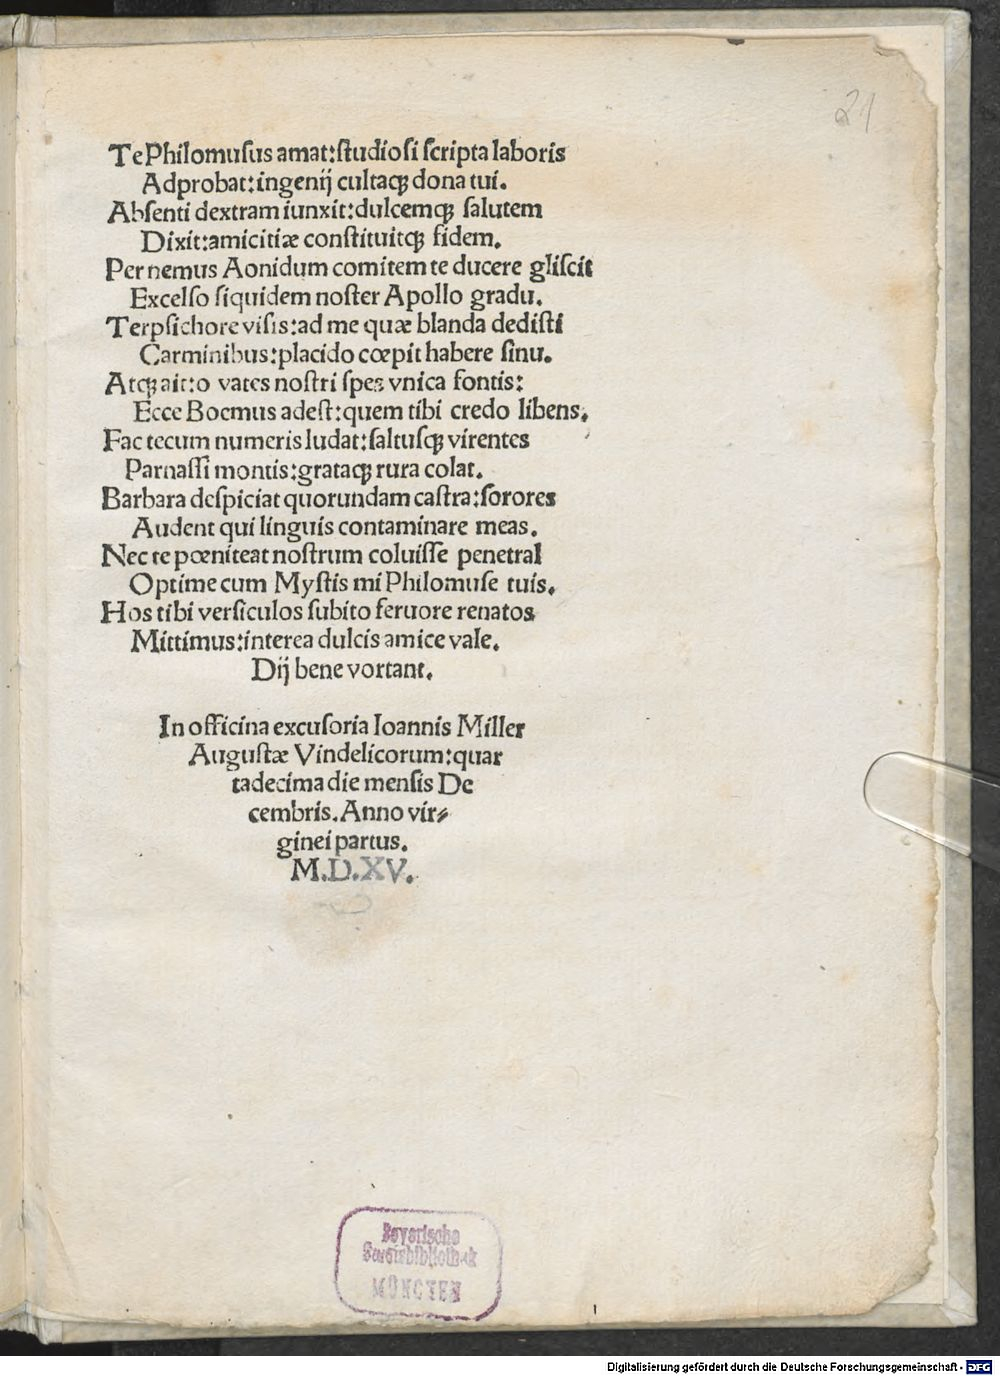 21
Te Philomusus amat:studiosi scripta laboris
Adprobat:ingenij cultaqꝫ dona tui.
Absenti dextram iunxit:dulcemqꝫ salutem
Dixit:amicitiæ constituitqꝫ fidem.
Per nemus Aonidum comitem te ducere gliscit
Excelso siquidem noster Apollo gradu.
Terpsichore visis:ad me quæ blanda dedisti
Carminibus:placido cœpit habere sinu.
Atqꝫ ait:o vates nostri spes vnica fontis:
Ecce Boemus adest:quem tibi credo libens.
Fac tecum numeris ludat:saltusqꝫ virentes
Parnassi montis:grataqꝫ rura colat.
Barbara despiciat quorundam castra:sorores
Audent qui linguis contaminare meas.
Nec te pœniteat nostrum coluisse penetral
Optime cum Mystis mi Philomuse tuis.
Hos tibi versiculos subito feruore renatos
Mittimus:interea dulcis amice vale.
Dij bene vortant.
In officina excusoria Ioannis Miller
Augustæ Vindelicorum:quar
tadecima die mensis De
cembris.Anno vir⸗
ginei partus.
M.D.XV.
Bayerische
Staatsbibliothek
MÜNCHEN
Digitalisierung gefördert durch die Deutsche Forschungsgemeinschaft - DFG